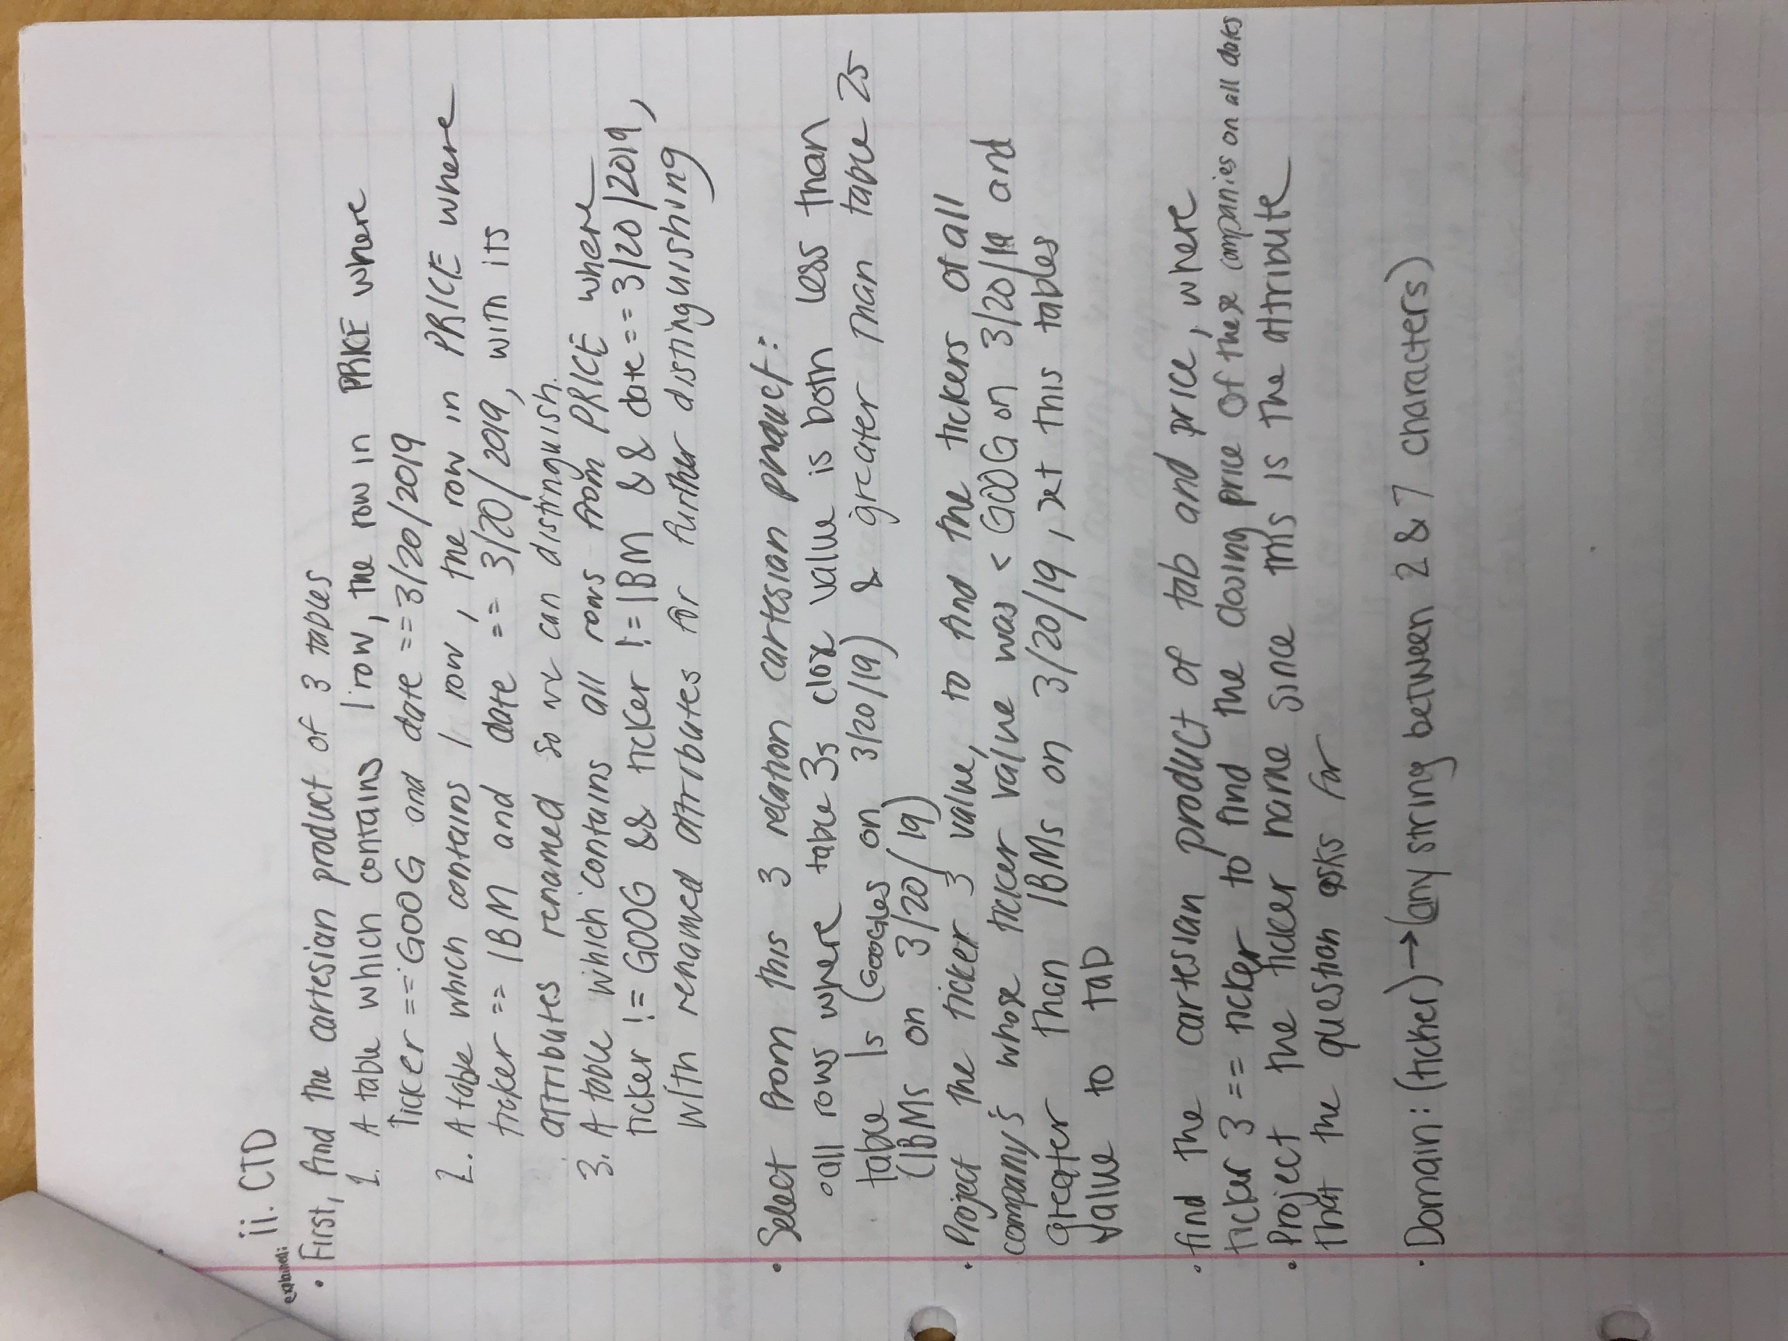 ii. CTD
explained:
• First, find the cartesian product of 3 tables
1. A table which contains 1 row, the row in PRICE where
Ticker == GOOG and date == 3/20/2019
2. A table which contains 1 row, the row in PRICE where
ticker == IBM and date == 3/20/2019, with its
attributes renamed so we can distinguish.
3. A table which contains all rows from PRICE where
ticker != GOOG && ticker != IBM && date == 3/20/2019,
with renamed attributes for further distinguishing
• Select from this 3 relation cartesian product:
all rows where table 3s close value is both less than
table 1s (Googles on 3/20/19) & greater than table 2s
(IBMs on 3/20/19)
• Project the ticker 3 value, to find the tickers of all
company's whose ticker value was < GOOG on 3/20/19 and
greater than IBMs on 3/20/19, set this tables
value to tab
• find the cartesian product of tab and price, where
ticker 3 == ticker to find the closing price of these companies on all dates
• Project the ticker name since this is the attribute
that the question asks for
• Domain: (ticker) → (any string between 2 & 7 characters)